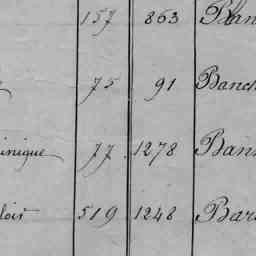 157 863 Blan
75 91 Banc
inique 77 1278 Bans
lois 519 1248 Bar